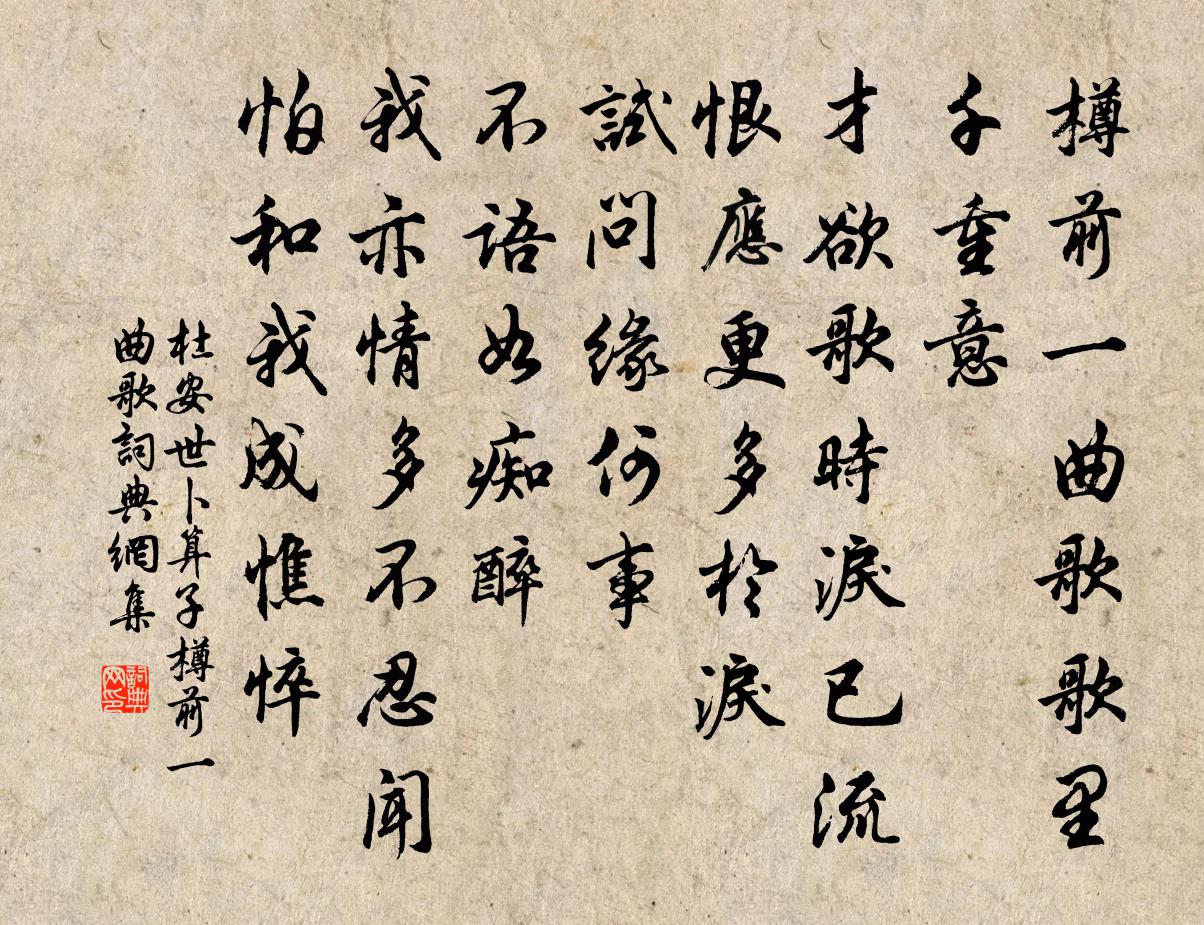 樽前一曲歌歌里
千重意
才欲歌時淚已流
恨應更多於淚
試問緣何事
不語如痴醉
我亦情多不忍聞
怕和我成憔悴
杜安世卜算子樽前一
曲歌詞典網集
詞典
网印